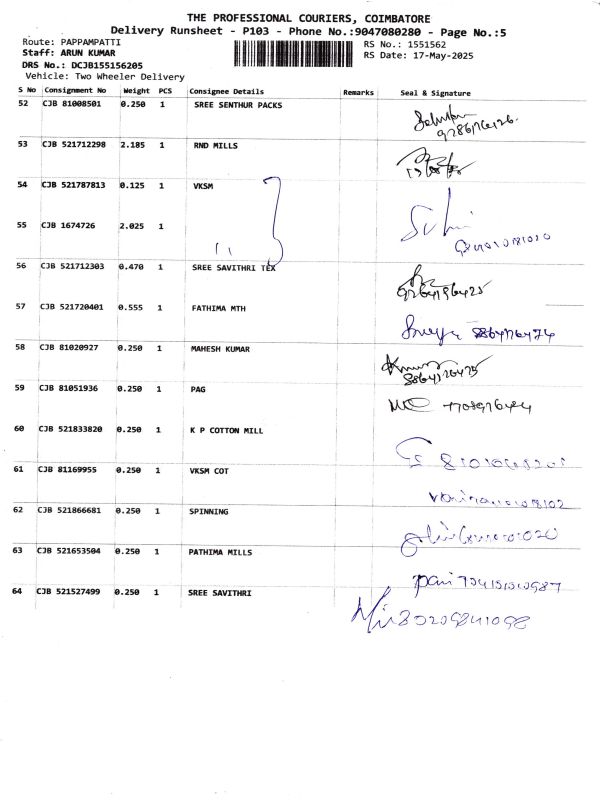 THE PROFESSIONAL COURIERS, COIMBATORE
Delivery Runsheet - P103 - Phone No.:9047080280 - Page No.:5
Route: PAPPAMPATTI RS No.: 1551562
Staff: ARUN KUMAR RS Date: 17-May-2025
DRS No.: DCJB155156205
Vehicle: Two Wheeler Delivery
S No Consignment No Weight PCS Consignee Details Remarks Seal & Signature
52 CJB 81008501 0.250 1 SREE SENTHUR PACKS
53 CJB 521712298 2.185 1 RND MILLS
54 CJB 521787813 0.125 1 VKSM
55 CJB 1674726 2.025 1
56 CJB 521712303 0.470 1 SREE SAVITHRI TEX
57 CJB 521720401 0.555 1 FATHIMA MTH
58 CJB 81020927 0.250 1 MAHESH KUMAR
59 CJB 81051936 0.250 1 PAG
60 CJB 521833820 0.250 1 K P COTTON MILL
61 CJB 81169955 0.250 1 VKSM COT
62 CJB 521866681 0.250 1 SPINNING
63 CJB 521653504 0.250 1 PATHIMA MILLS
64 CJB 521527499 0.250 1 SREE SAVITHRI